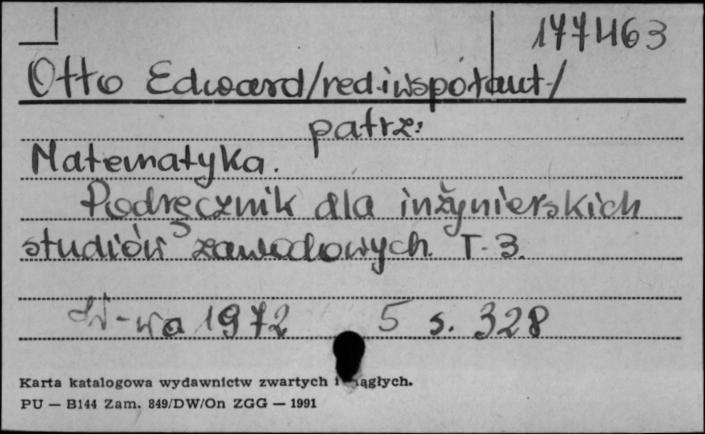 177463
Otto Edward/red.i współaut./
patrz:
Matematyka.
Podręcznik dla inżynierskich
studiów zawodowych. T. 3.
W-wa 1972 5 s. 328
Karta katalogowa wydawnictw zwartych i ciągłych.
PU — B144 Zam. 849/DW/On ZGG — 1991